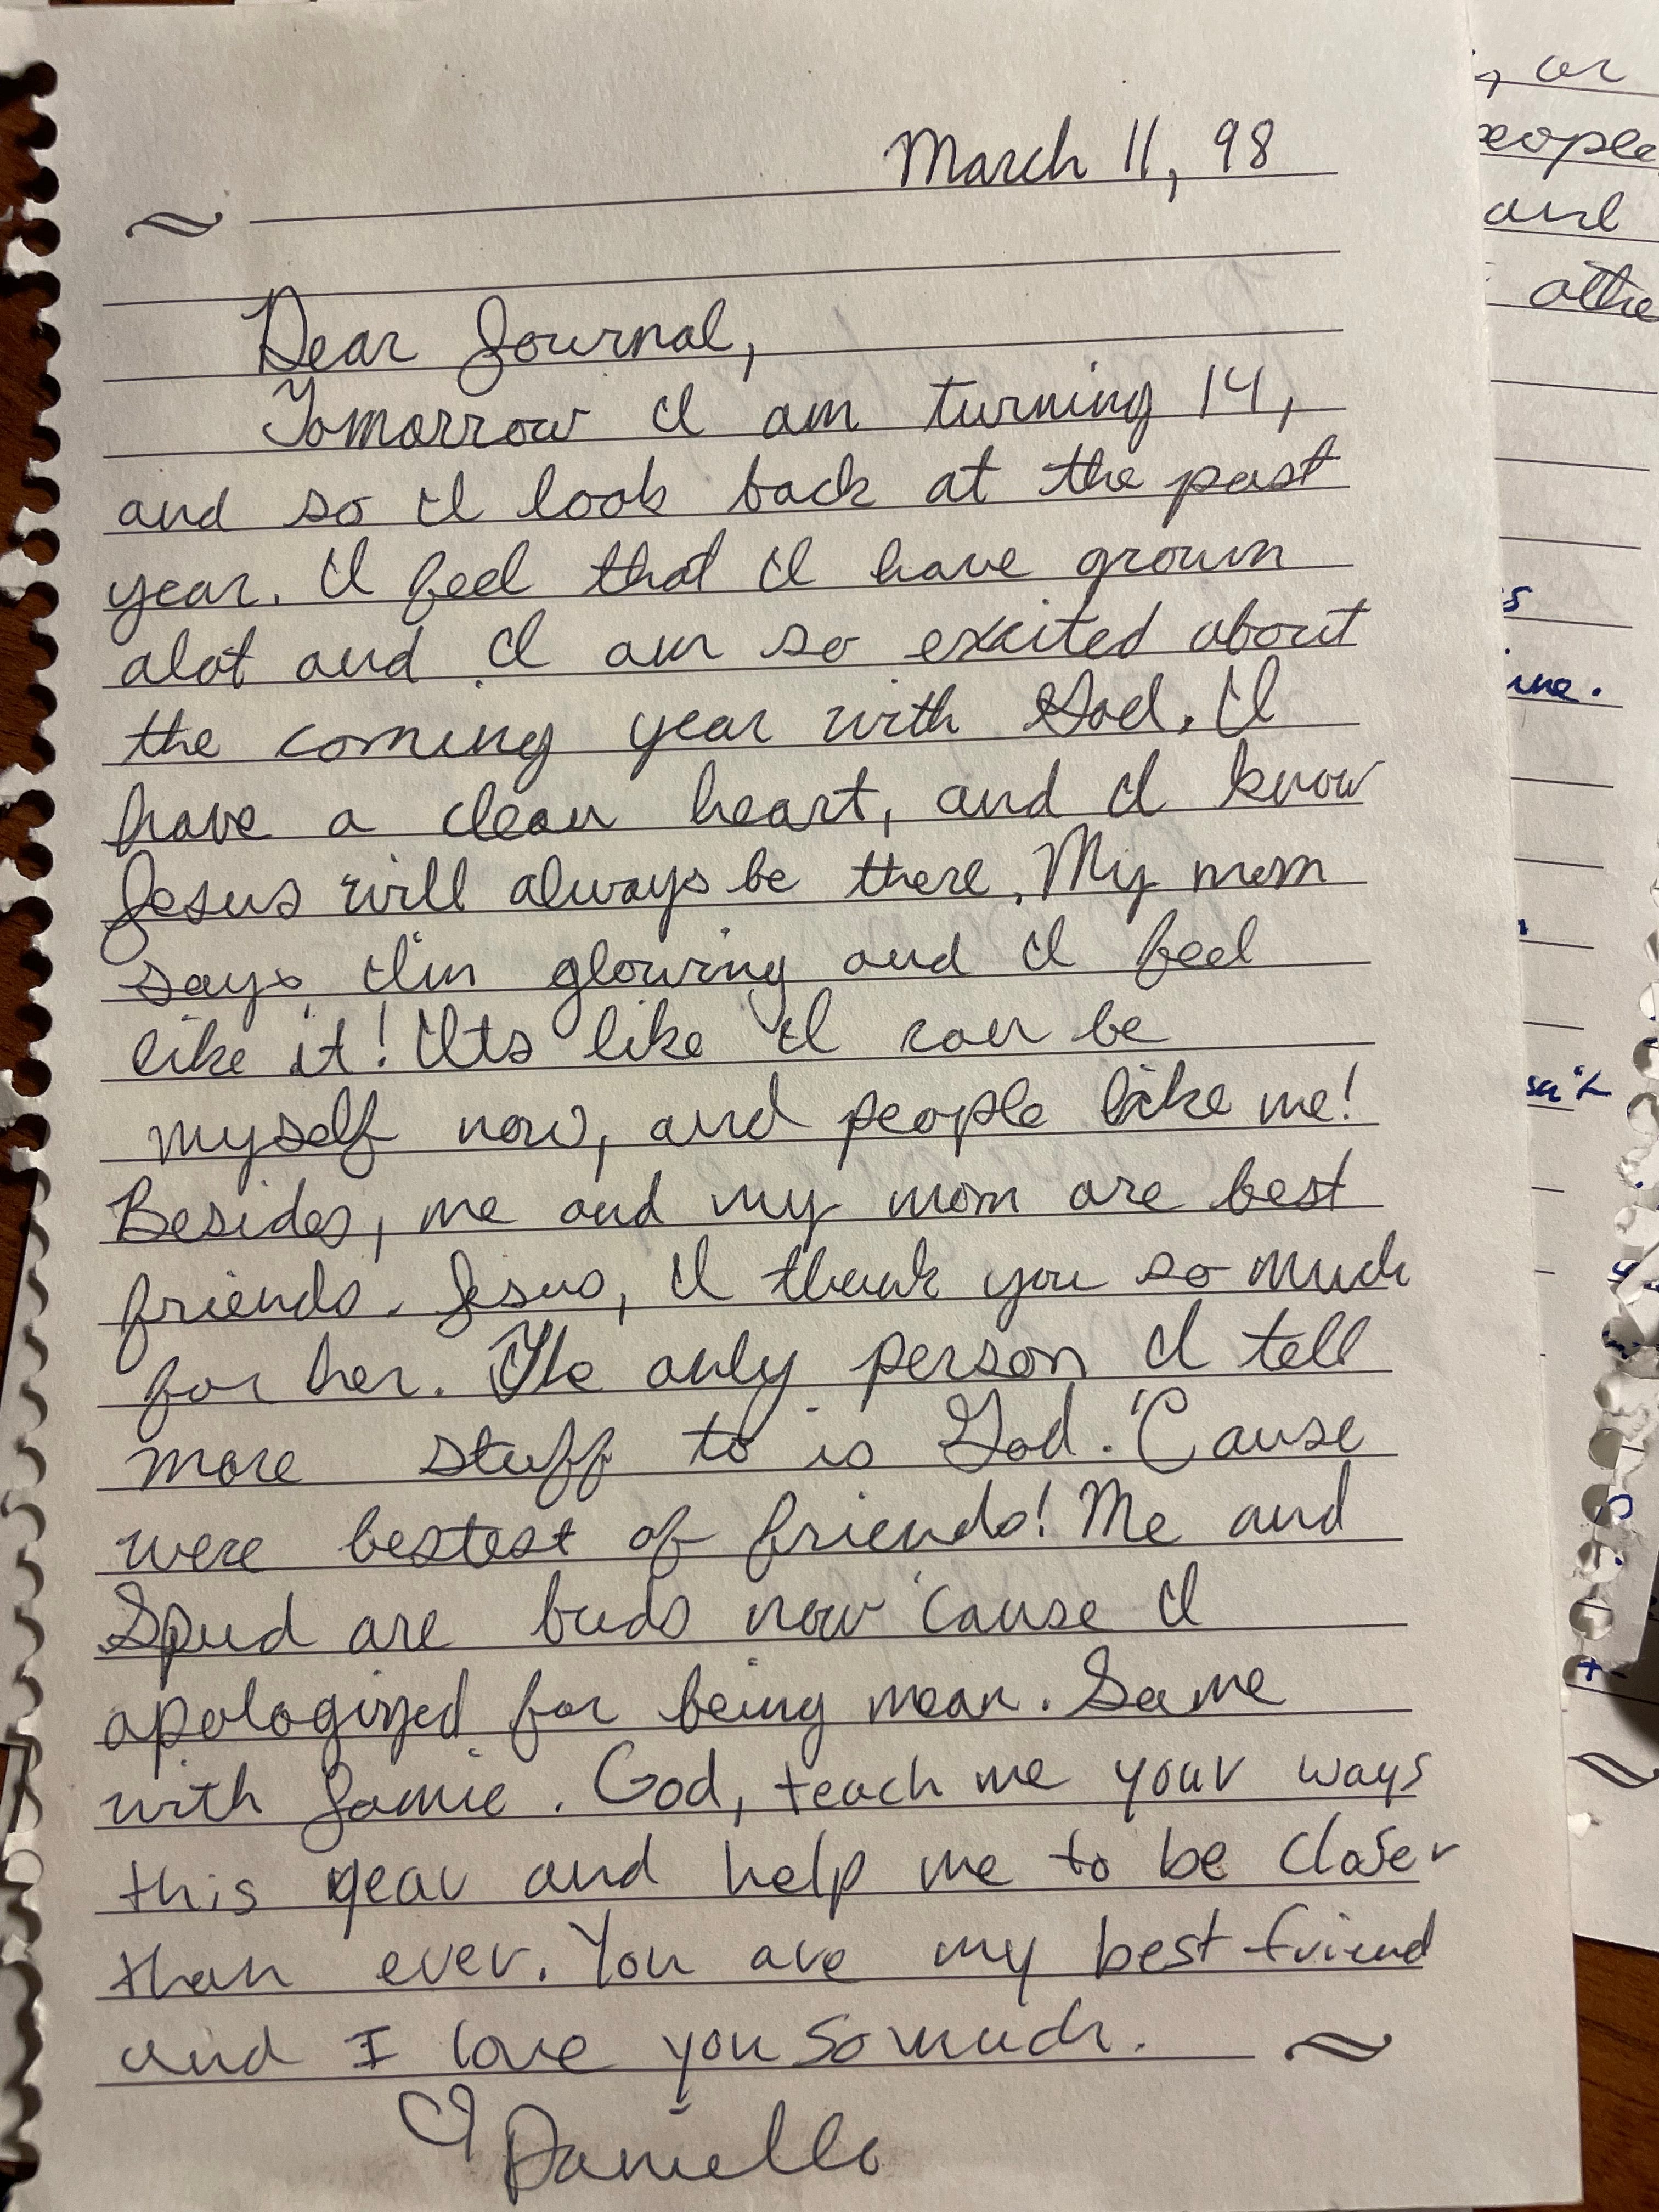 March 11, 98
Dear Journal,
Tomorrow I am turning 14,
and so I look back at the past
year. I feel that I have grown
alot and I am so excited about
the coming year with God. I
have a clean heart, and I know
Jesus will always be there. My mom
says I'm glowing and I feel
like it! Its like I can be
myself now, and people like me!
Besides, me and my mom are best
friends. Jesus, I thank you so much
for her. The only person I tell
more stuff to is God. 'Cause
were bestest of friends! Me and
Spud are buds now 'cause I
apologized for being mean. Same
with Jamie. God, teach me your ways
this year and help me to be closer
than ever. You are my best friend
and I love you so much.
♡ Danielle
, or
people
and
othe
s
ine.
sn't